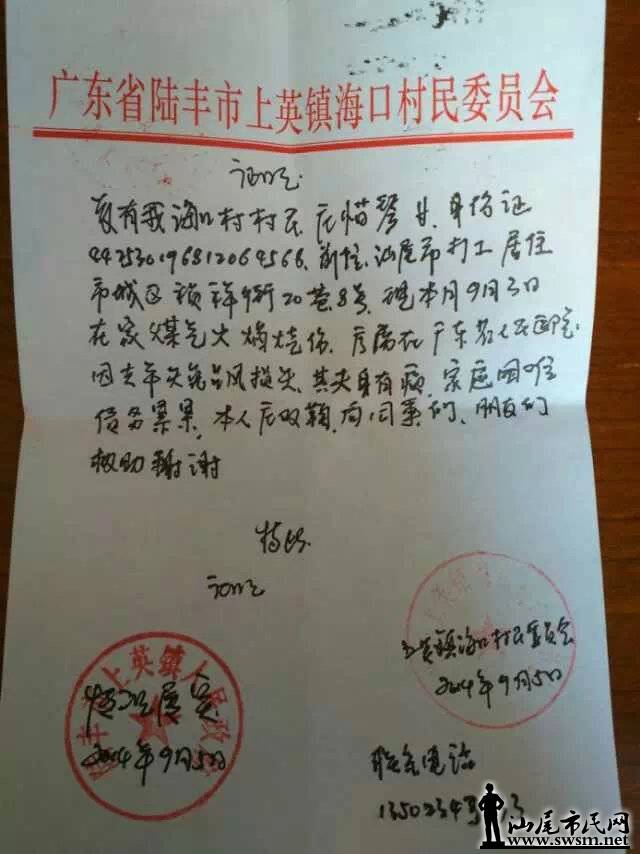 广东省陆丰市上英镇海口村民委员会
证明
兹有我海口村村民庄惜琴女,身份证
442530196812064566,前往汕尾市打工居住
市城区 街20巷8号,现本月9月3日
在家煤气火焰烧伤,店属在广东省人民医院
因去年天兔台风损失,其夫身有病,家庭困难
债务累累,本人庄双鞠,向同事们、朋友们
救助谢谢
特此
证明
上英镇海口村民委员会
2014年9月5日
上英镇人民政府
情况属实
2014年9月5日
联系电话
1350234
汕尾市民网
www.swsm.net